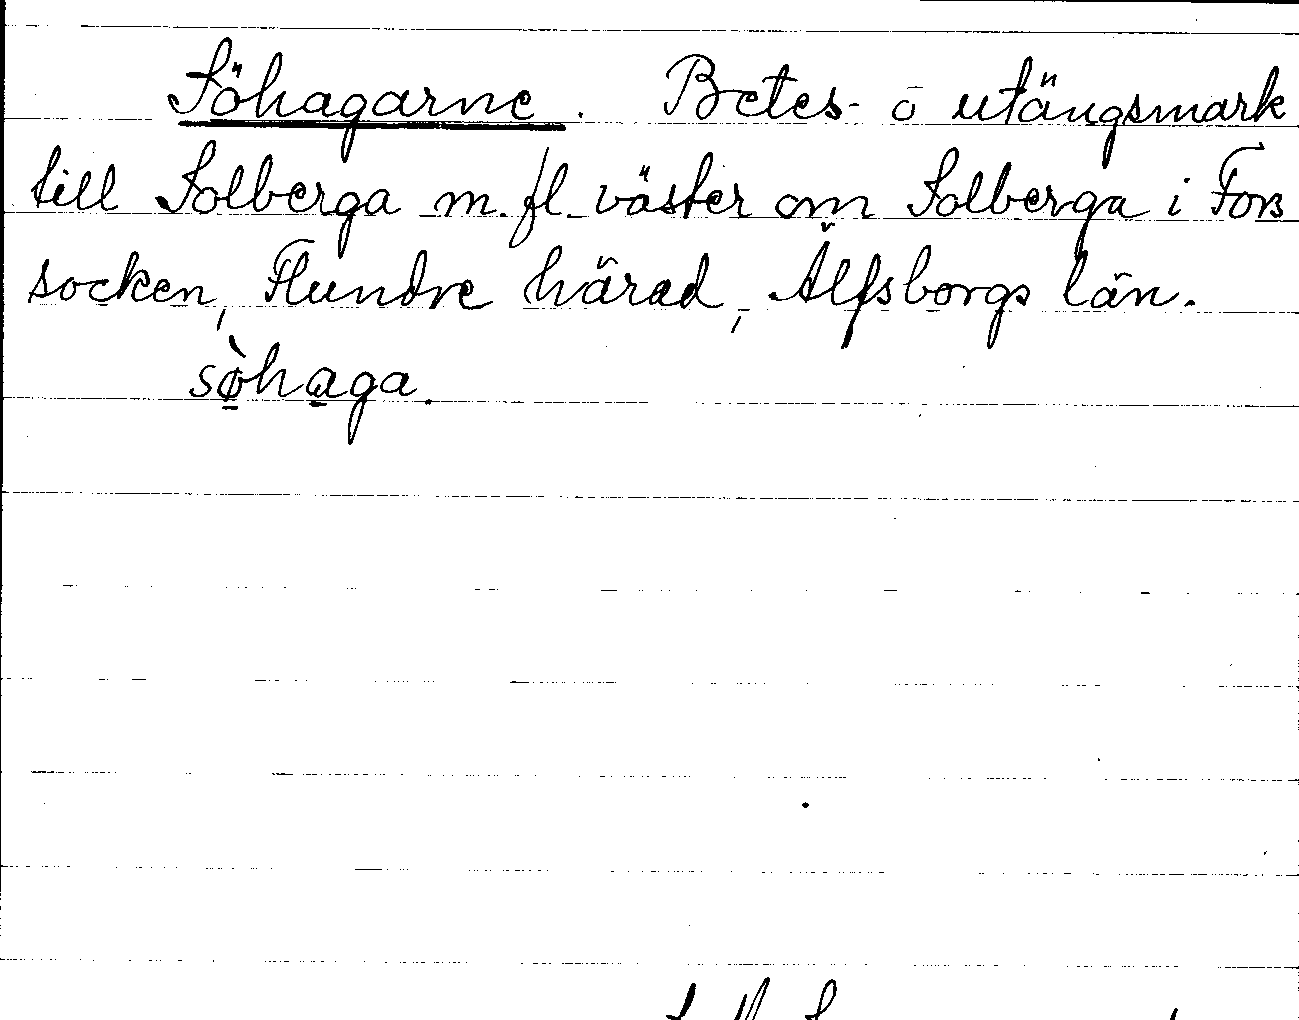 Söhagarne. Betes- o utängsmark
till Solberga m. fl. väster om Solberga i Fors
socken, Flundre härad, Älfsborgs län.
sø̀haga.